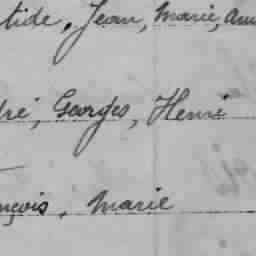 tide, Jean, Marie, Am
dré, Georges, Henri
nçois, Marie